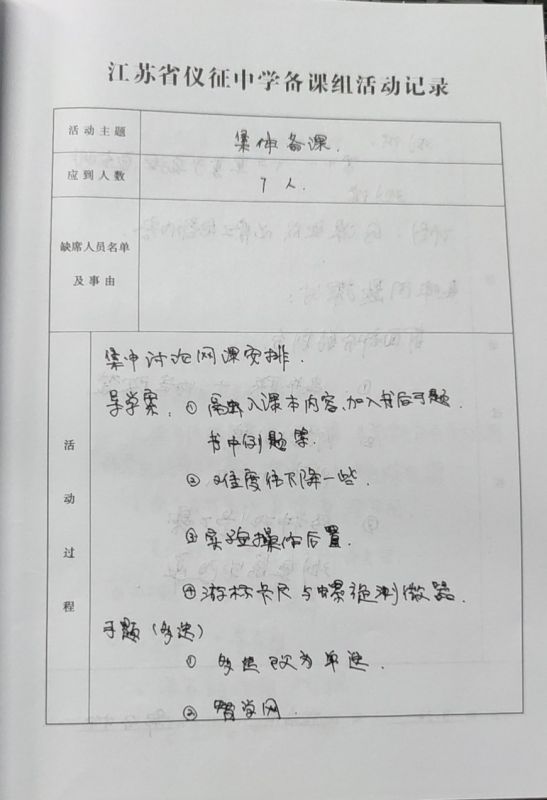 江苏省仪征中学备课组活动记录
活动主题
集体备课.
应到人数
7人.
缺席人员名单
及事由
活动过程
集中讨论网课安排.
导学案: ① 入课本内容、加入书后习题.
书中例题等.
② 难度下降一些.
③ 实验操作后置.
④ 游标卡尺与螺旋测微器.
习题(多选)
① 多选改为单选.
② 智学网.